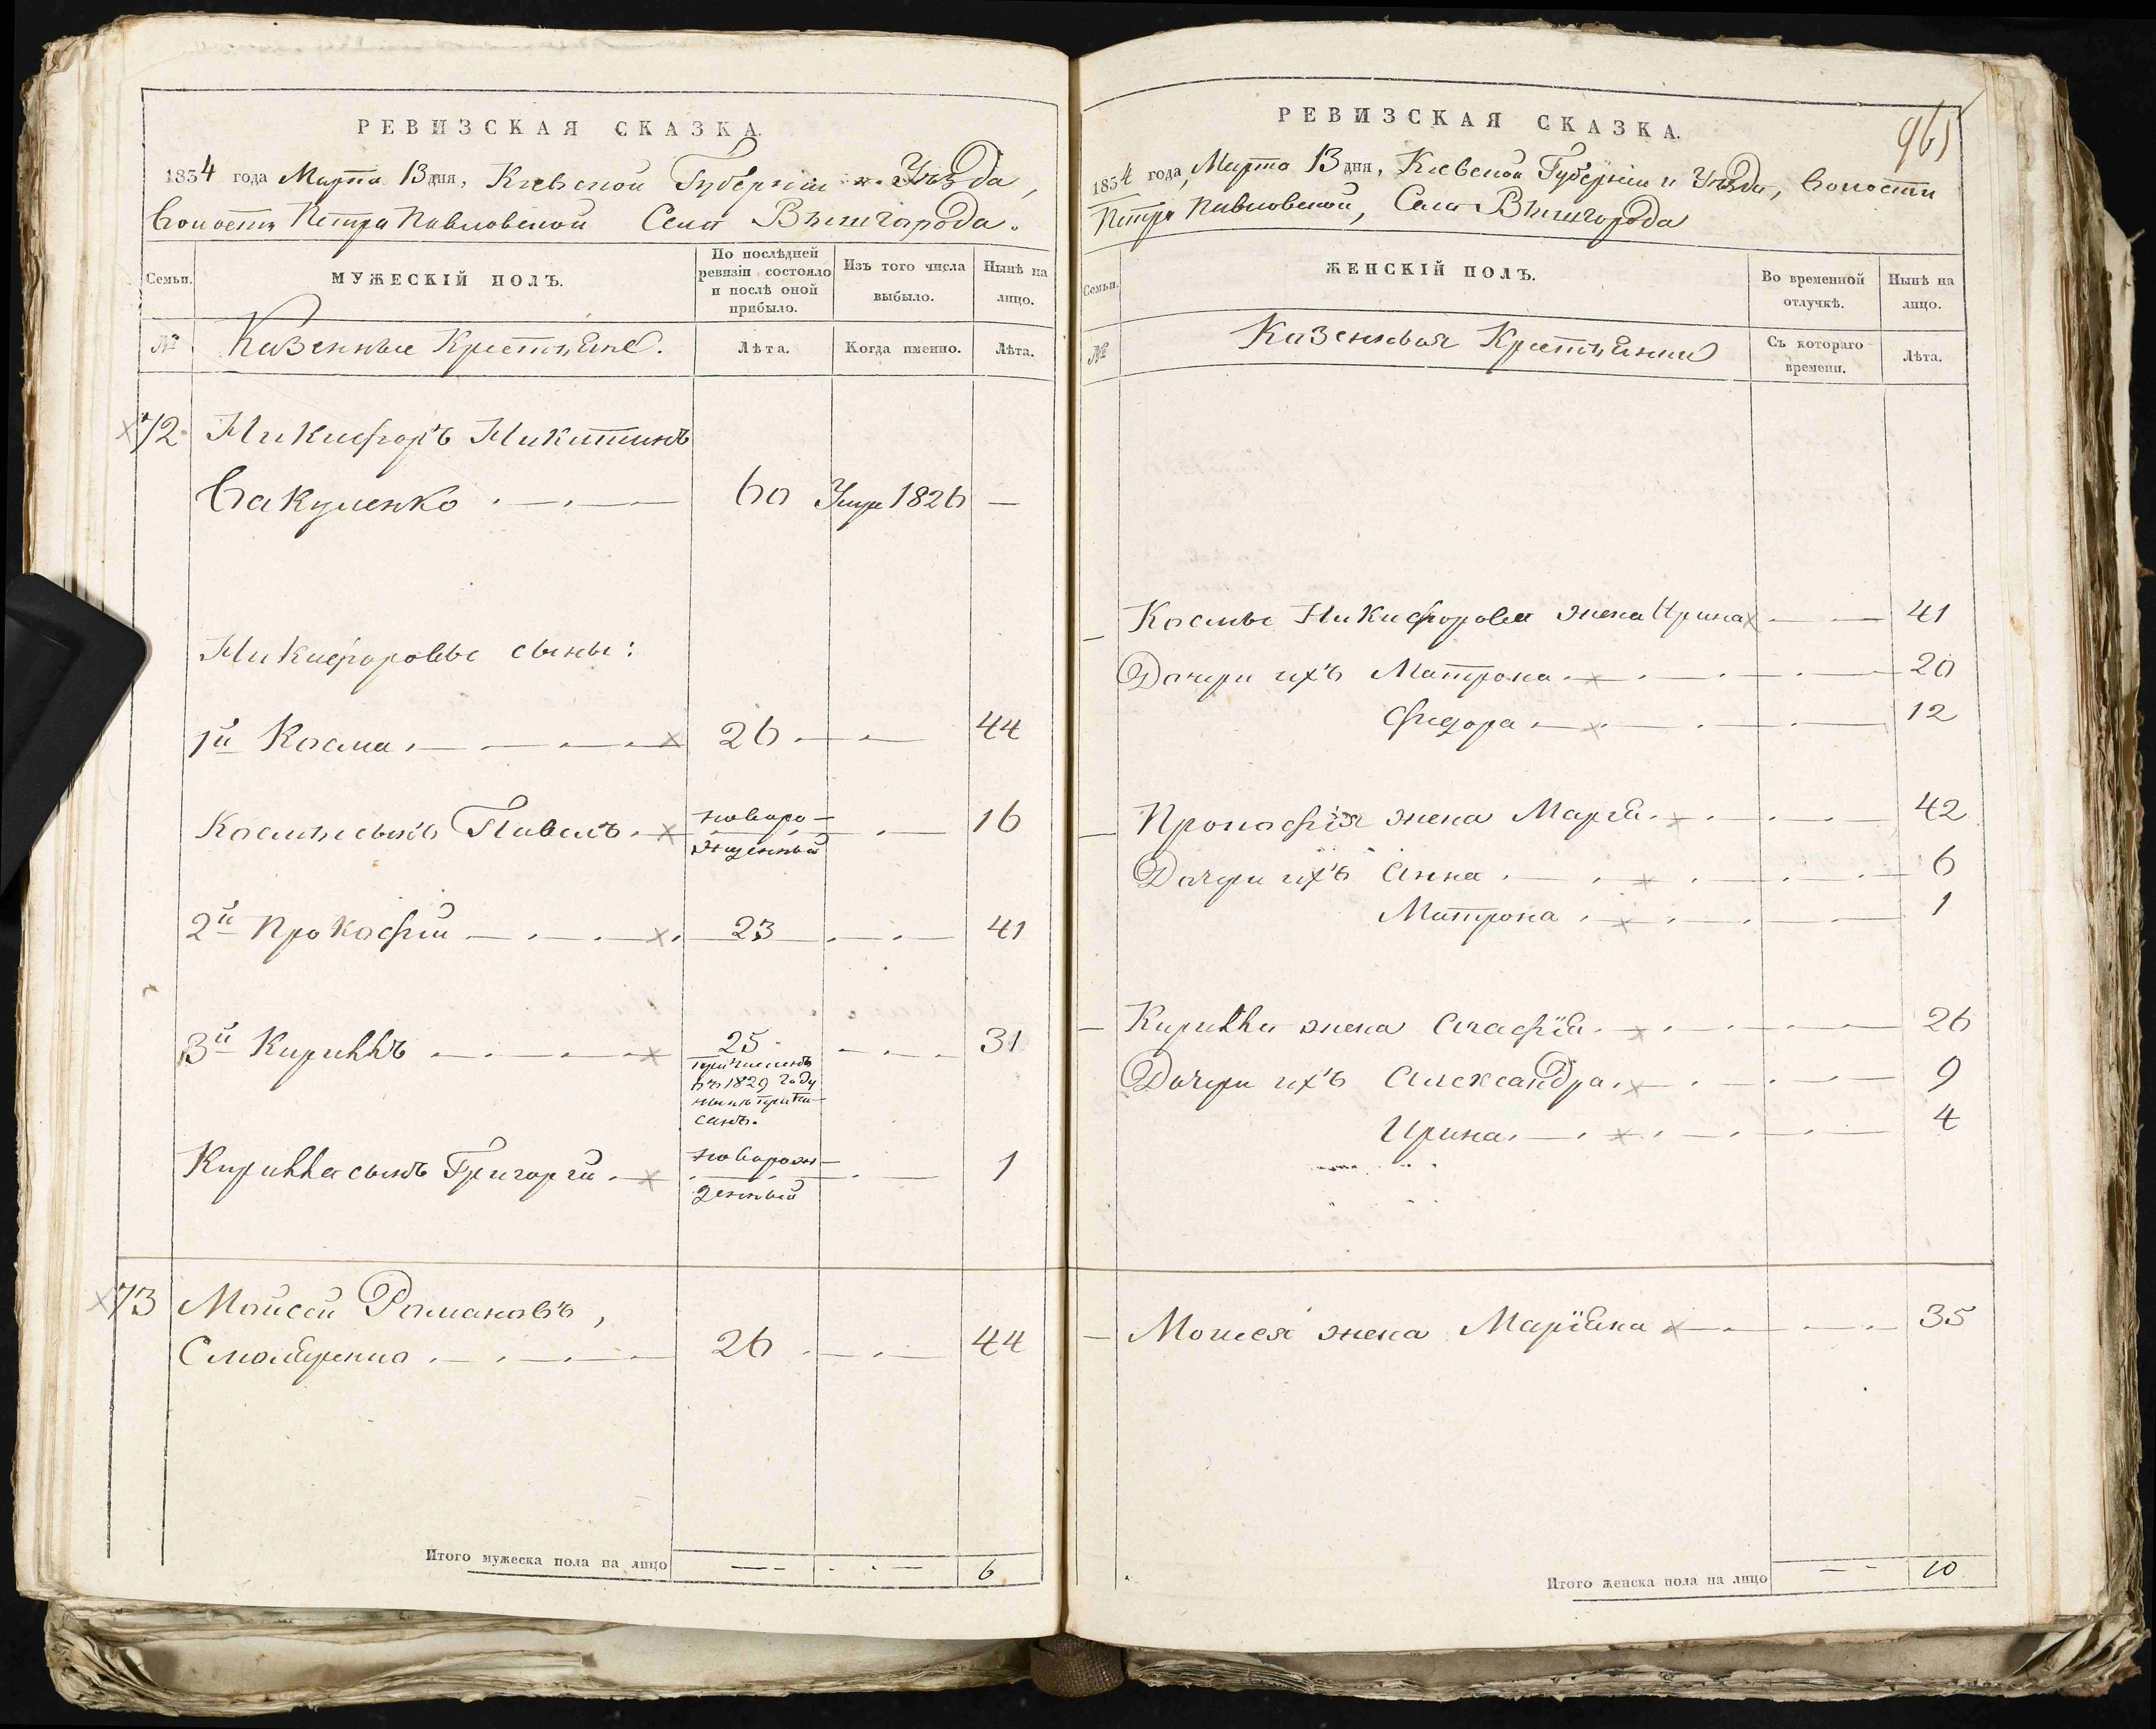 РЕВИЗСКАЯ СКАЗКА.
1834 года Марта 13 дня, Кіевской Губерніи и Уѣзда,
Волости Петро Павловской Села Вышгорода.
Семьи.
МУЖЕСКІЙ ПОЛЪ.
По послѣдней ревизіи состояло и послѣ оной прибыло.
Изъ того числа выбыло.
Нынѣ на лицо.
№
Казенные Крестьяне.
Лѣта.
Когда именно.
Лѣта.
72 Никифоръ Никитинъ
Вакуленко 60 Умре 1826 —
Никифоровы сыны:
1й Косма 26 44
Космы сынъ Павелъ новорожденный 16
2й Прокофій 23 41
3й Кириллъ 25 причисленъ въ 1829 году нынѣ приписанъ. 31
Кирилла сынъ Григорій новорожденный 1
73 Моисей Романовъ,
26 44
Итого мужеска пола на лицо 6
РЕВИЗСКАЯ СКАЗКА.
961
1834 года Марта 13 дня, Кіевской Губерніи и Уѣзда, Волости
Петро Павловской, Села Вышгорода
Семьи.
ЖЕНСКІЙ ПОЛЪ.
Во временной отлучкѣ.
Нынѣ на лицо.
№
Казенныя Крестьянки
Съ котораго времени.
Лѣта.
Космы Никифорова жена Ирина 41
Дочери ихъ Матрона 20
Фидора 12
Прокофія жена Марія 42
Дочери ихъ Анна 6
Матрона 1
Кирилла жена Агафія 26
Дочери ихъ Александра 9
Ирина 4
Моисея жена Маріяна 35
Итого женска пола на лицо 10